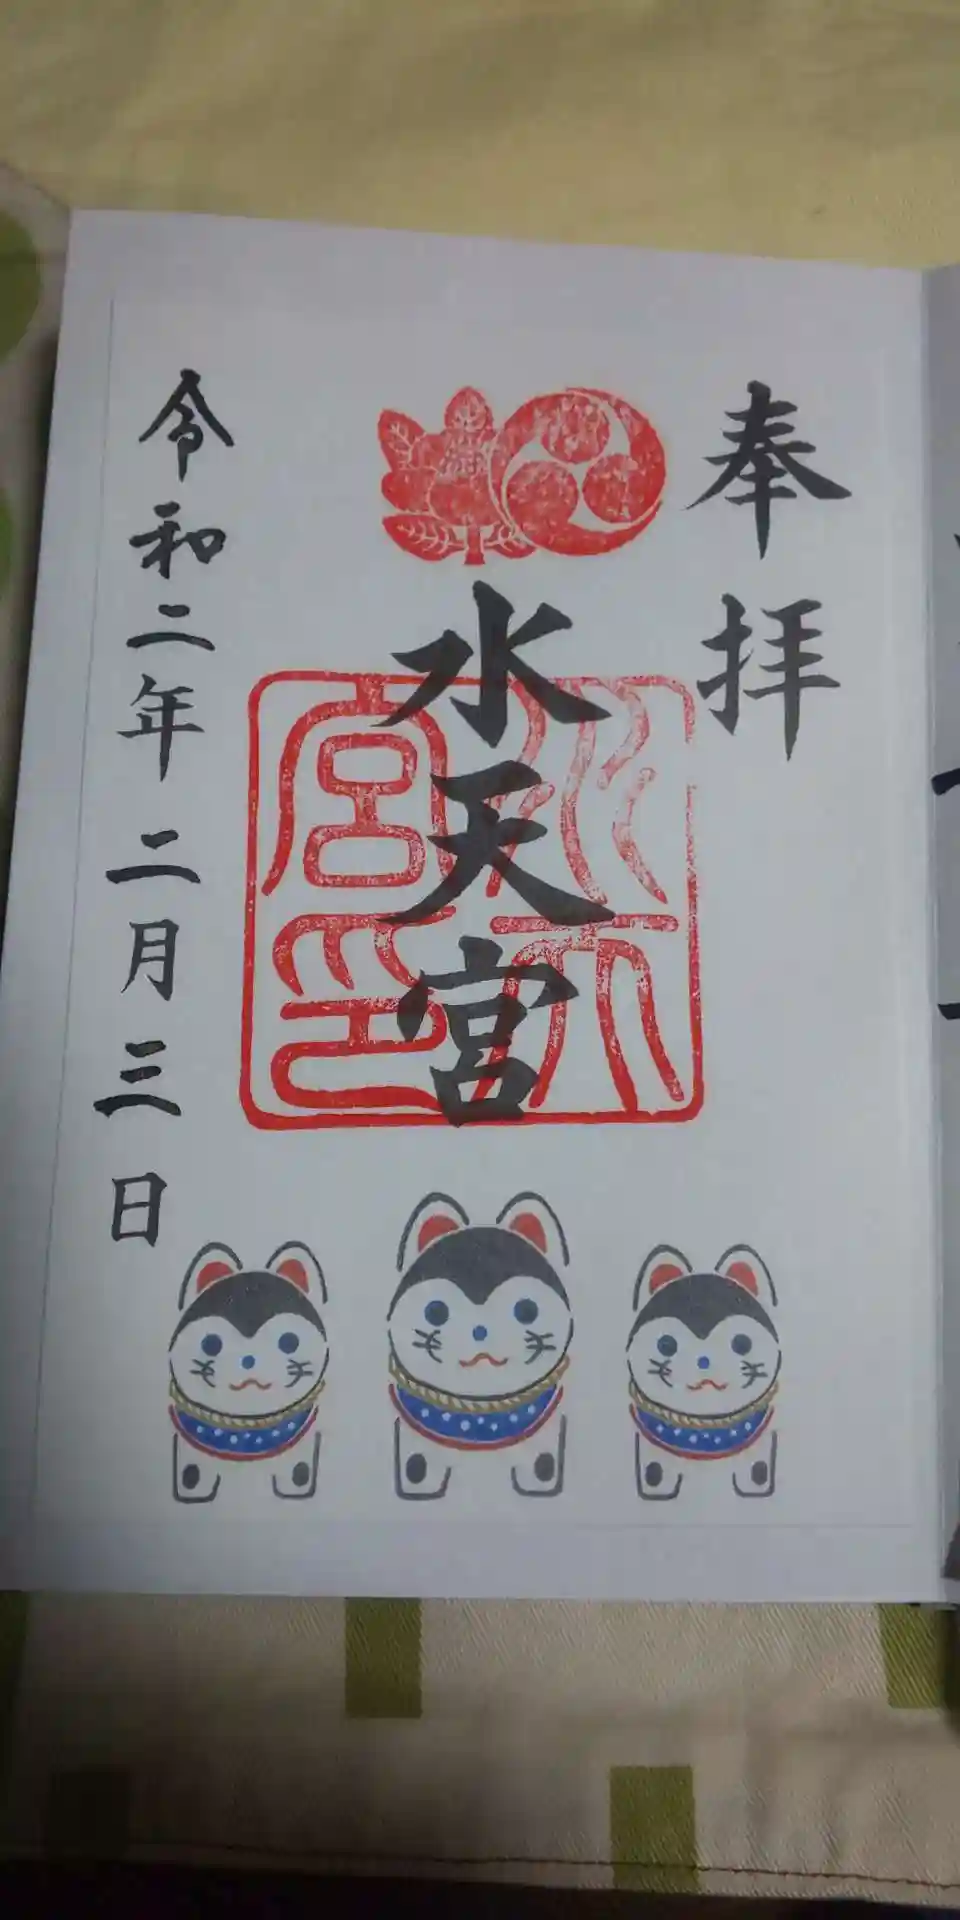 奉拝
水天宮
水天宮印
令和二年二月三日